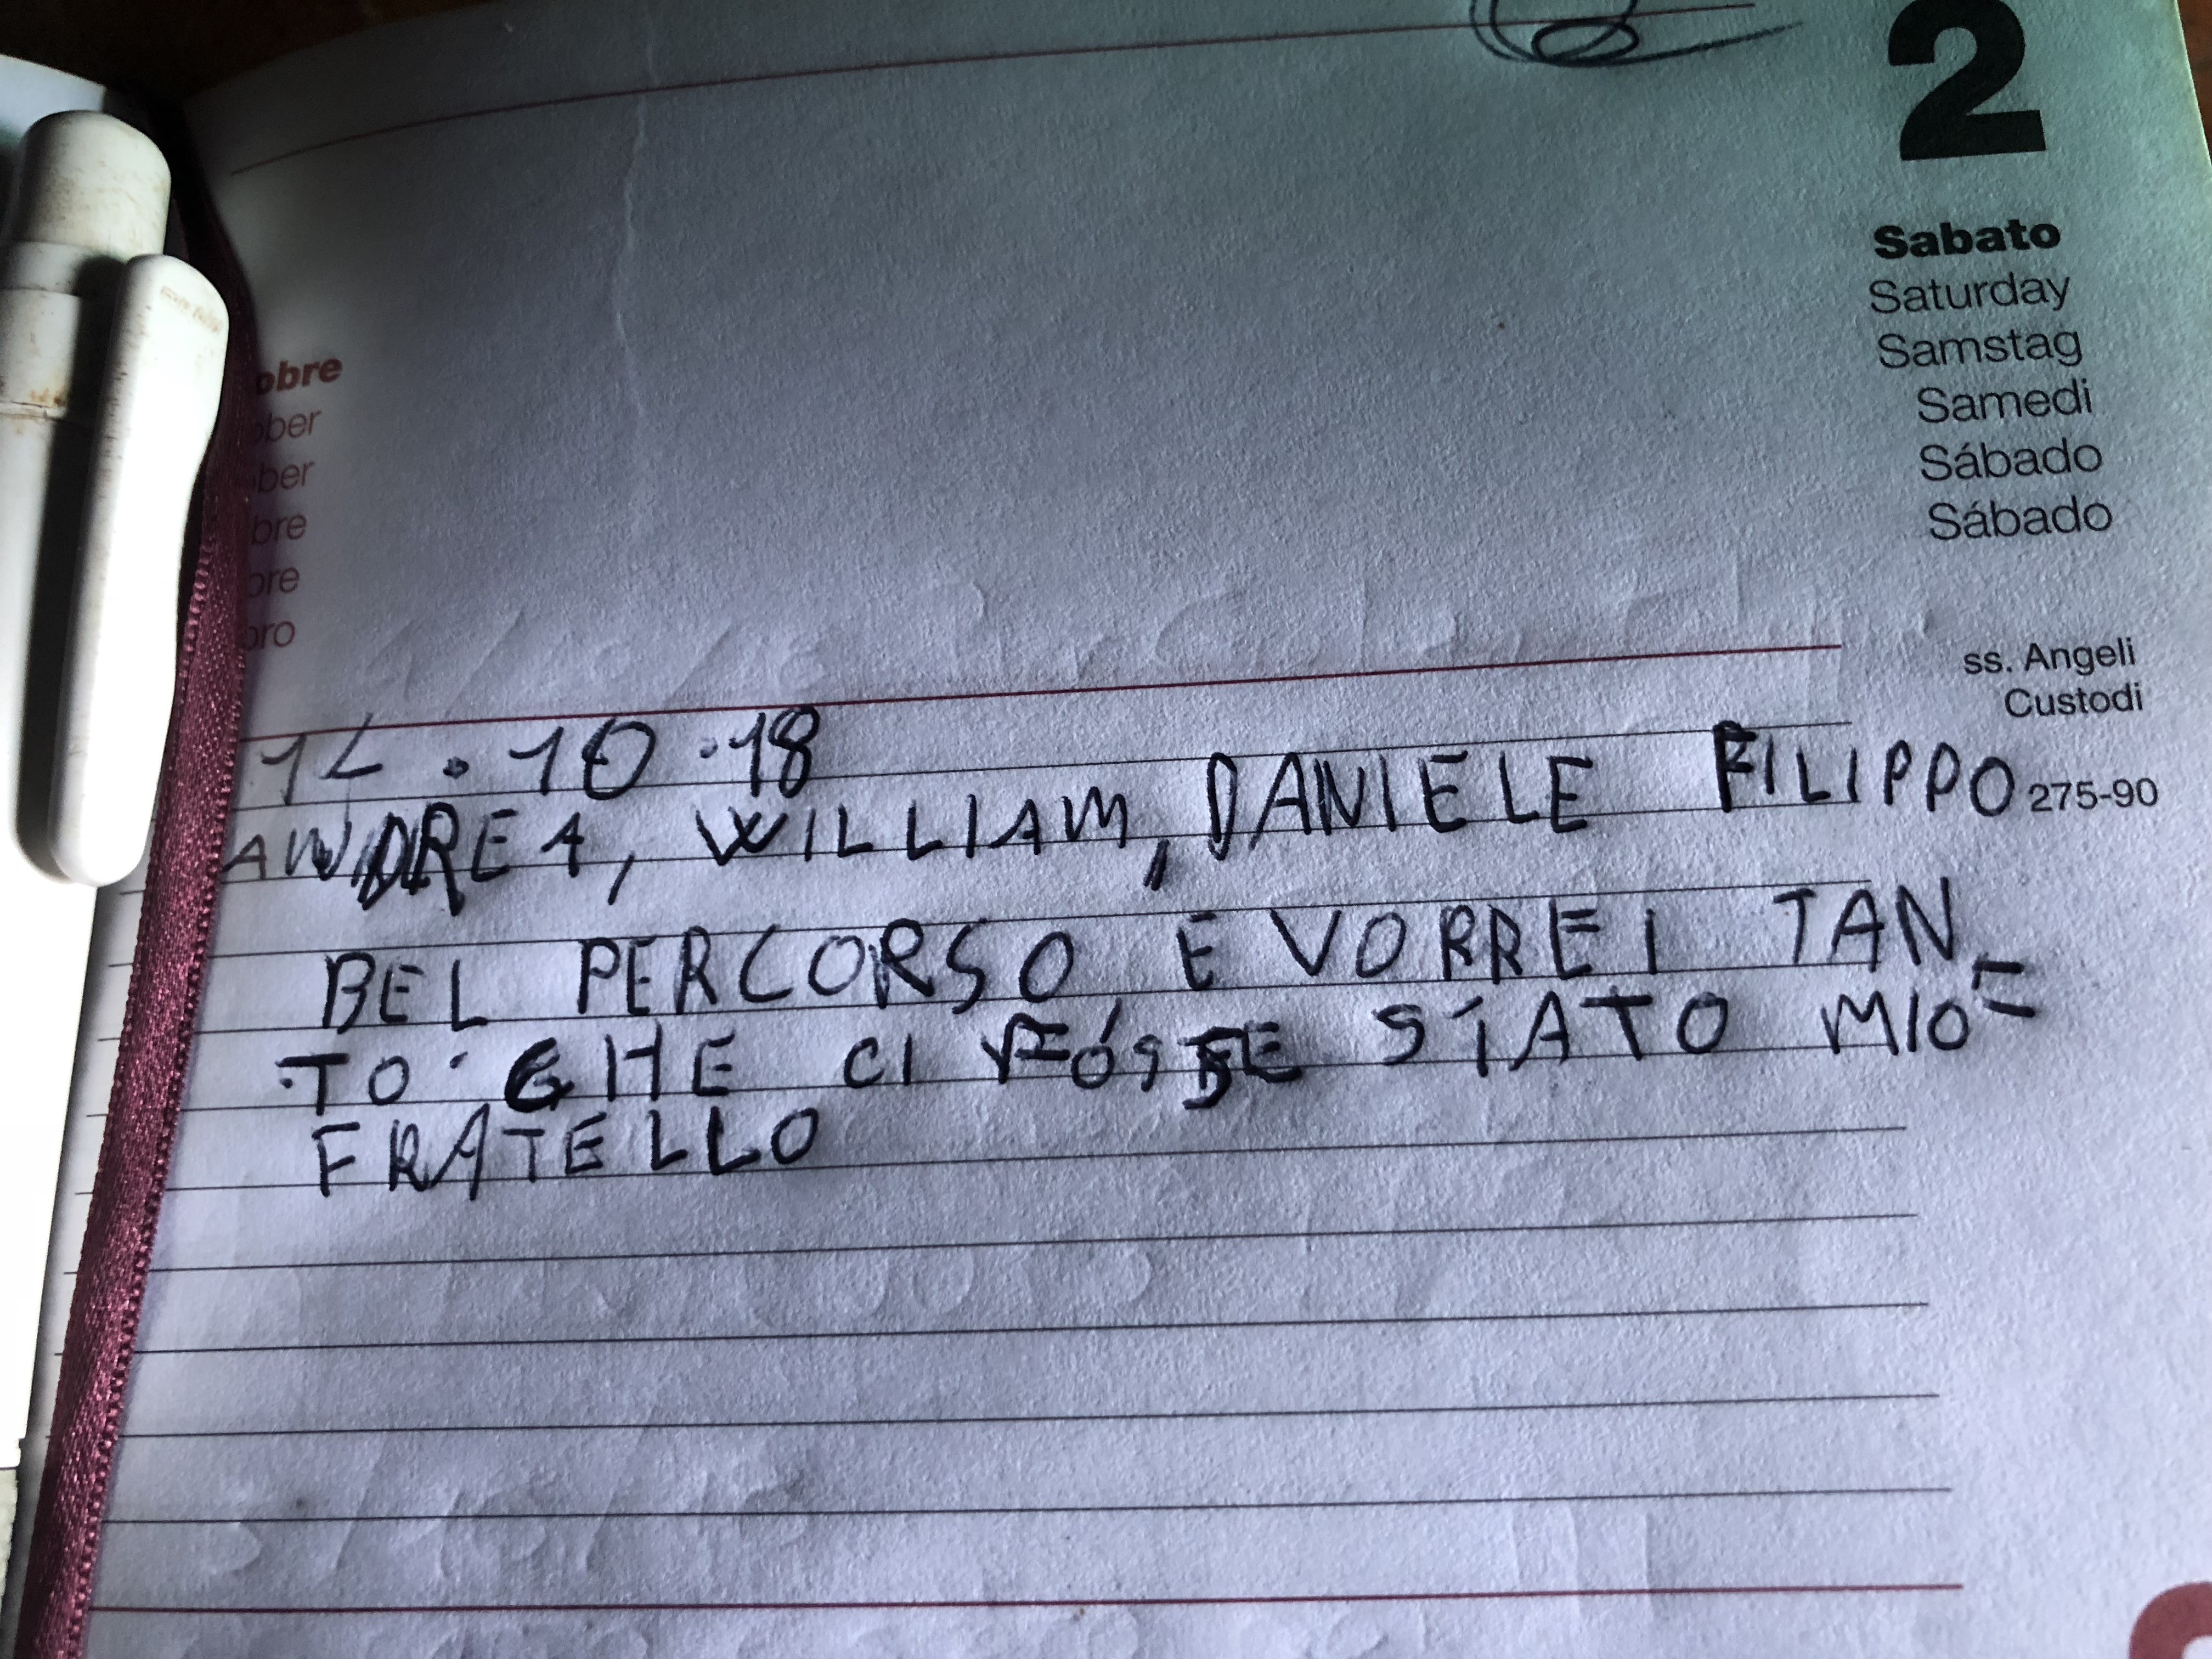 2
Sabato
Saturday
Samstag
Samedi
Sábado
Sábado
obre
ober
ber
bre
bre
bro
ss. Angeli
Custodi
275-90
14.10.18
ANDREA, WILLIAM, DANIELE FILIPPO
BEL PERCORSO, E VORREI TAN=
TO CHE CI FOSSE STATO MIO
FRATELLO